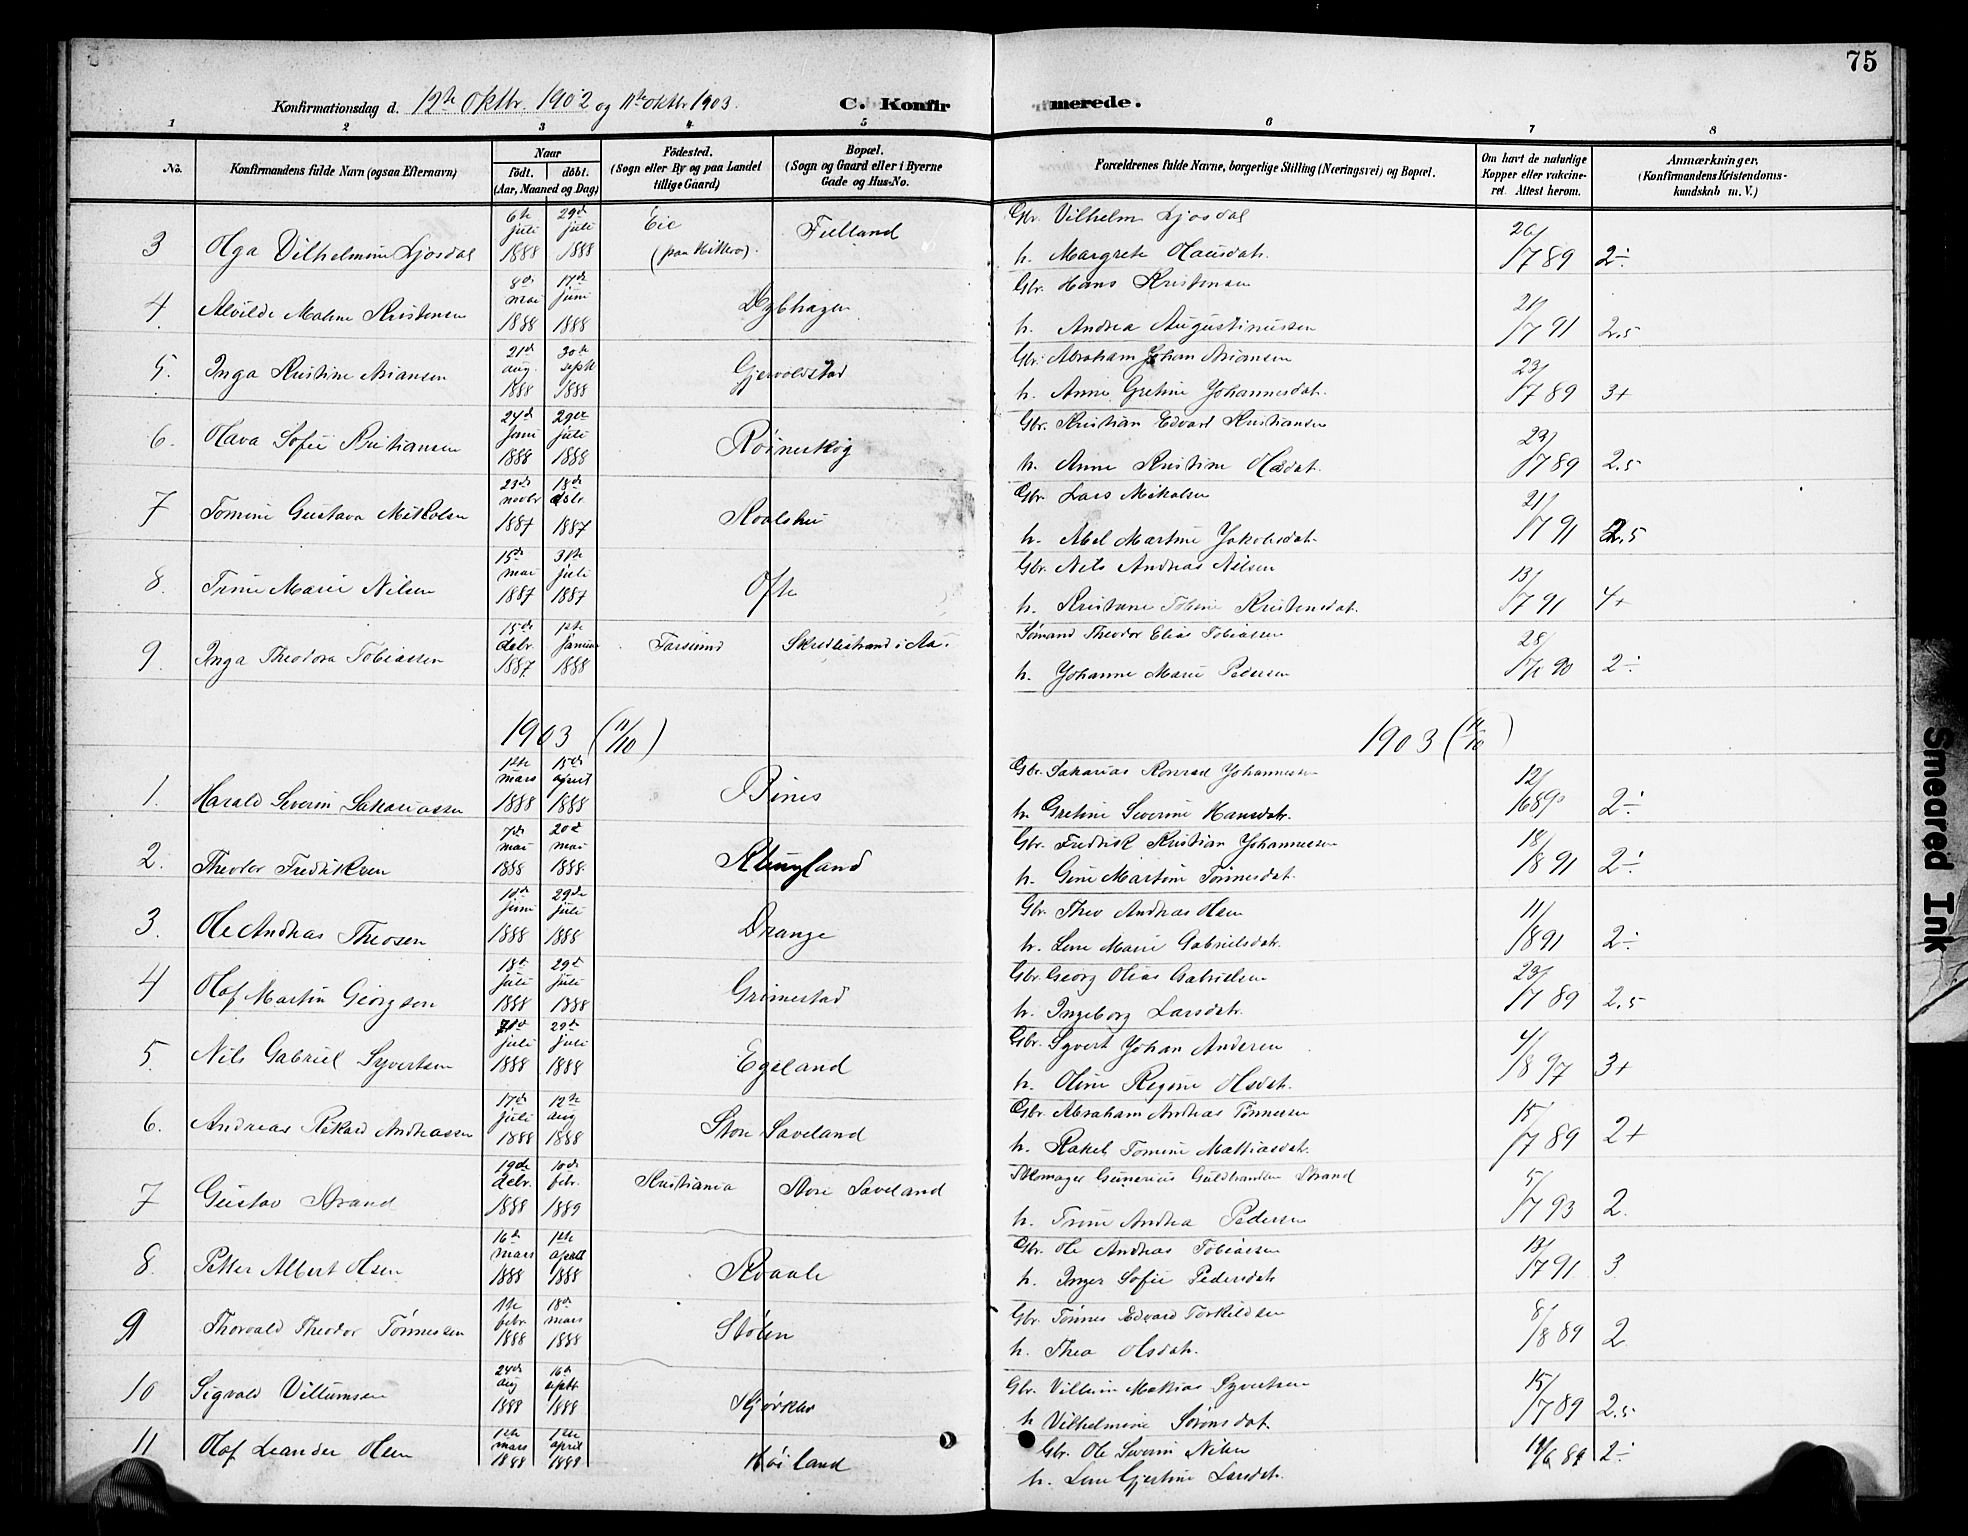 75
Konfirmationsdag d. 12te Oktbr. 1902 og 11te oktbr 1903. C. Konfirmerede.
1 2 3 4 5 6 7 8
No. Konfirmandens fulde Navn (ogsaa Efternavn) Naar födt. döbt. (Aar, Maaned og Dag) Födested. (Sogn eller By og paa Landet tillige Gaard) Bopæl. (Sogn og Gaard eller i Byerne Gade og Hus-No. Forældrenes fulde Navne, borgerlige Stilling (Næringsvei) og Bopæl. Om havt de naturlige Kopper eller vakcineret. Attest herom. Anmærkninger. (Konfirmandens Kristendomskundskab m. V.)
3 Olga Vilhelmine Ljosdal 6te juli 1888 29de juli 1888 Eie (paa Hitterø). Felland Gbr. Vilhelm Ljosdal
h. Margrete Hansdatr. 26/7 89 2÷
4 Alvilde Malene Kristensen 8de mai 1888 17de juni 1888 Dybhagen Gbr. Hans Kristensen
h. Andrea Augustinussen 21/7 91 2.5
5. Inga Kristine Ariansen 21de aug. 1888 30te septr 1888 Gjervoldstad Gbr. Abraham Johan Ariansen
h. Anne Gretine Johannesdatr. 23/7 89 3+
6. Olava Sofie Kristiansen 24de juni 1888 29de juli 1888 Røineskog Gbr. Kristian Edvard Kristiansen
h. Anne Kristine Olsdatr. 23/7 89 2.5
7 Tomine Gustava Mikalsen 23de novbr 1887 18de debr. 1887 Roalshei Gbr. Lars Mikalsen
h. Abel Martine Jakobsdatr 21/7 91 2.5
8. Trine Marie Nilsen 15de mai 1887 31te juli 1887 Ofte Gbr. Nils Andreas Nilsen
h. Kristiane Tobine Kristensdatr. 13/7 91 4+
9. Inga Theodora Tobiassen 15de debr. 1887 1ste januar 1888 Farsund Skredlestrand i Aa. Sømand Theodor Elias Tobiassen
h. Johanne Marie Pedersen 28/ 90 2÷
1903 (11/10) 1903 (11/10)
1. Harald Severin Sakariassen 1ste mars 1888 15de april 1888 Bines Gbr. Sakarias Konrad Johannessen
h. Gretine Severine Hansdatr. 12/6 89 2÷
2. Theodor Fredriksen 7de mai 1888 20de mai 1888. Klungland Gbr. Fredrik Kristian Johannessen
h. Gine Martine Tønnesdatr. 18/8 91 2÷
3. Ole Andreas Theosen juni 1888 29de juli 1888 Drange Gbr. Theo Andreas Olsen
h. Lene Marie Gabrielsdatr. 11/8 91 2÷
4 Olaf Martin Georgsen 18de juli 1888 29de juli 1888 Grimestad Gbr. Georg Olias Gabrielsen
h. Ingeborg Larsdatr. 23/7 89 2.5
5. Nils Gabriel Syvertsen juli 1888 29de juli 1888 Egeland Gbr. Syvert Johan Andersen
h. Oline Regine Olsdatr. 4/8 97 3+
6. Andreas Rikard Andreassen 17de juli 1888 12te aug 1888 Store Saveland Gbr. Abraham Andreas Tønnesen
h. Rakel Tomine Mathiasdatr. 15/7 89 2+
7 Gustav Strand 19de debr. 1888 10de febr. 1889 Kristiania Store Saveland Skomager Gunerius Guldbrandsen Strand
h. Trine Andrea Pedersen 5/7 93 2.
8. Petter Albert Olsen 16de mars 1888 1ste april 1888 Roaale Gbr. Ole Andreas Tobiassen
h. Inger Sofie Pedersdatr 13/7 91 3
9 Thorvald Theodor Tønnessen 1ste febr. 1888 18de mars 1888 Stølen Gbr. Tønnes Edvard Torkildsen
h. Thea Olsdatr. 8/8 89 2
10 Sigvald Villumsen 24de aug 1888 16de septr 1888 Gbr. Villum Mathias Syvertsen
h Vilhelmine Sørensdat. 15/7 89 2.5
11 Olaf Leander Olsen 1ste mars 1888 1ste april 1888 Høiland Gbr. Ole Severin Nilsen
h. Lene Gjertine Larsdatr. 89 2÷
Smeared Ink